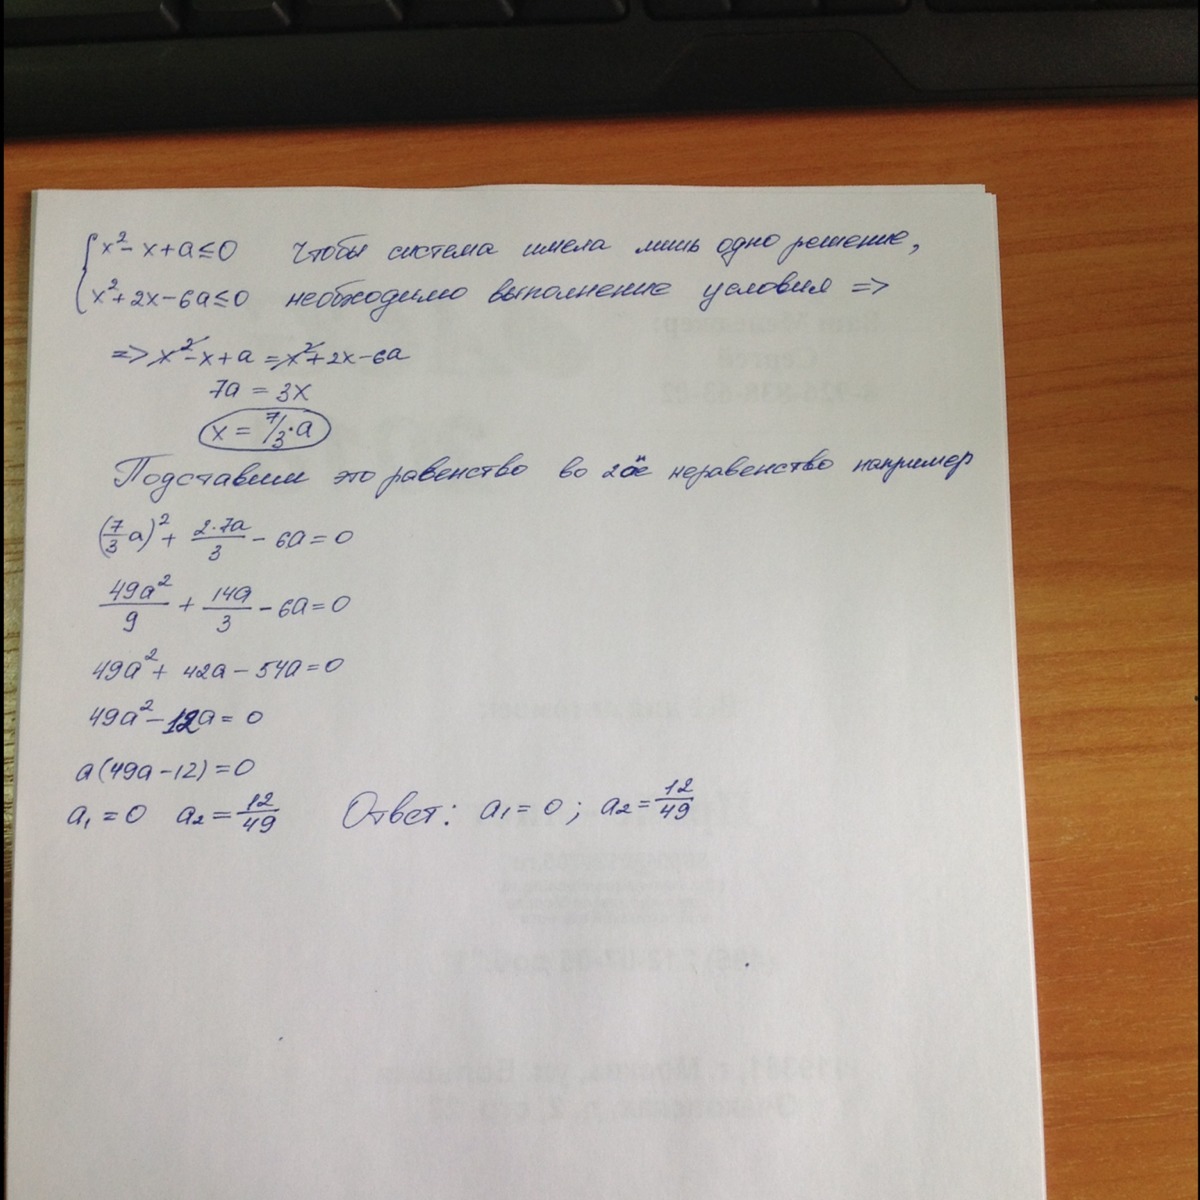 {x² - x + a ≤ 0 Чтобы система имела лишь одно решение,
x² + 2x - 6a ≤ 0 необходимо выполнение условия =>
=> x² - x + a = x² + 2x - 6a
7a = 3x
x = 7/3 · a
Подставим это равенство во 2ое неравенство например
(7/3 a)² + 2·7a/3 - 6a = 0
49a²/9 + 14a/3 - 6a = 0
49a² + 42a - 54a = 0
49a² - 12a = 0
a(49a - 12) = 0
a₁ = 0 a₂ = 12/49 Ответ: a₁ = 0; a₂ = 12/49